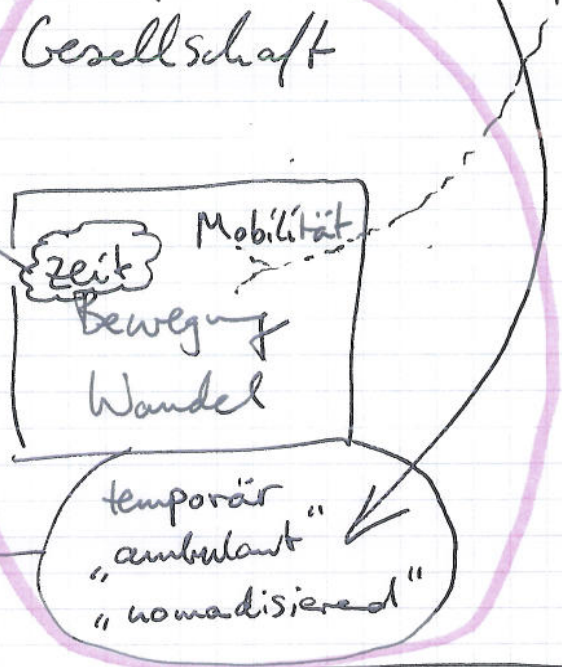 Gesellschaft
Mobilität
Zeit
Bewegung
Wandel
temporär
„ambulant“
„nomadisierend“